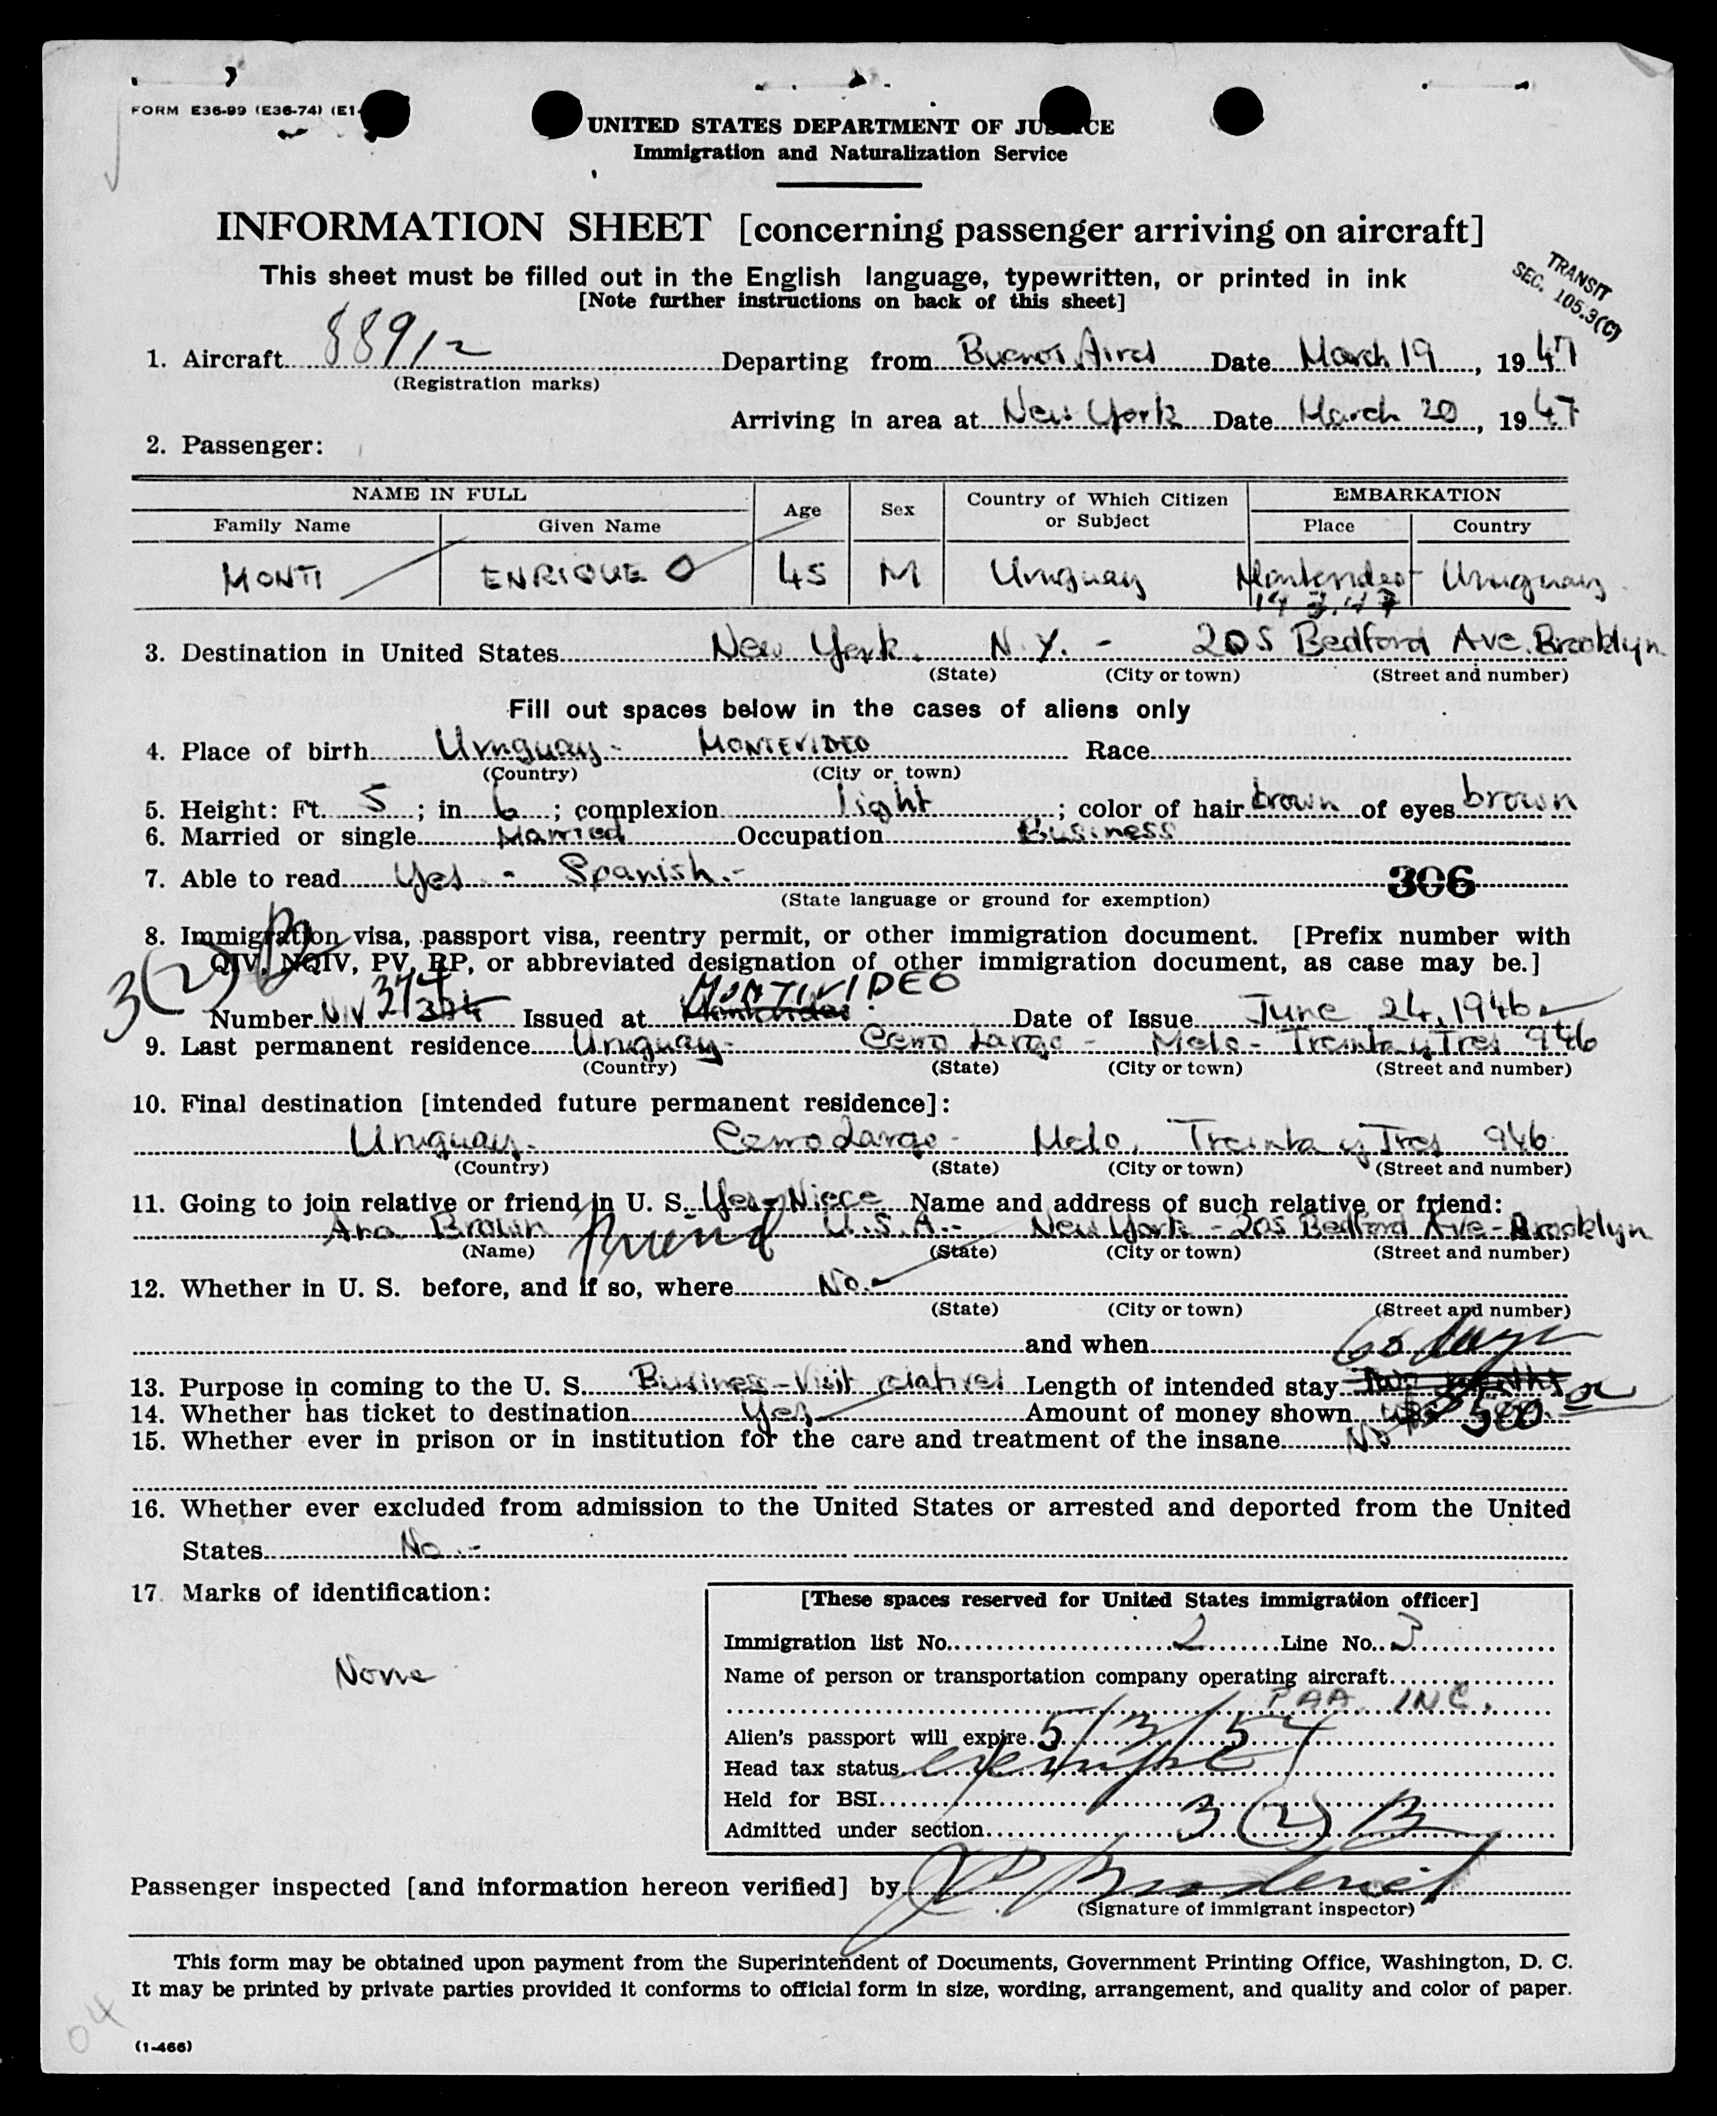 FORM E36-99 (E36-74) (E1-
UNITED STATES DEPARTMENT OF JUSTICE
Immigration and Naturalization Service
INFORMATION SHEET [concerning passenger arriving on aircraft]
This sheet must be filled out in the English language, typewritten, or printed in ink
[Note further instructions on back of this sheet]
TRANSIT
SEC. 105.3(C)
1. Aircraft 88912 Departing from Buenos Aires Date March 19, 1947
(Registration marks)
Arriving in area at New York Date March 20, 1947
2. Passenger:
NAME IN FULL Age Sex Country of Which Citizen or Subject EMBARKATION
Family Name Given Name Place Country
MONTI ENRIQUE O 45 M Uruguay Montevideo Uruguay
3. Destination in United States New York. N.Y. - 205 Bedford Ave. Brooklyn
(State) (City or town) (Street and number)
Fill out spaces below in the cases of aliens only
4. Place of birth Uruguay - MONTEVIDEO Race
(Country) (City or town)
5. Height: Ft. 5 ; in 6 ; complexion light ; color of hair brown of eyes brown
6. Married or single Married Occupation Business
7. Able to read Yes - Spanish.- 306
(State language or ground for exemption)
8. Immigration visa, passport visa, reentry permit, or other immigration document. [Prefix number with
QIV, NQIV, PV, RP, or abbreviated designation of other immigration document, as case may be.]
3(2)B
MONTIVIDEO
Number NIV 374 Issued at Montevideo Date of Issue June 24, 1946
9. Last permanent residence Uruguay - Cerro Largo - Melo - Treinta y Tres 946
(Country) (State) (City or town) (Street and number)
10. Final destination [intended future permanent residence]:
Uruguay - Cerro Largo - Melo, Treinta y Tres 946
(Country) (State) (City or town) (Street and number)
11. Going to join relative or friend in U. S. Yes - Niece Name and address of such relative or friend:
Ana Brown friend U.S.A.- New York - 205 Bedford Ave - Brooklyn
(Name) (State) (City or town) (Street and number)
12. Whether in U. S. before, and if so, where No.-
(State) (City or town) (Street and number)
and when
60 days
13. Purpose in coming to the U. S. Business - Visit relatives Length of intended stay Two months
14. Whether has ticket to destination Yes Amount of money shown 500
15. Whether ever in prison or in institution for the care and treatment of the insane No
16. Whether ever excluded from admission to the United States or arrested and deported from the United
States No.-
17. Marks of identification:
None
[These spaces reserved for United States immigration officer]
Immigration list No. 2 Line No. 3
Name of person or transportation company operating aircraft
PAA INC.
Alien's passport will expire 5/3/54
Head tax status exempt
Held for BSI
Admitted under section 3(2)B
Passenger inspected [and information hereon verified] by
(Signature of immigrant inspector)
This form may be obtained upon payment from the Superintendent of Documents, Government Printing Office, Washington, D. C.
It may be printed by private parties provided it conforms to official form in size, wording, arrangement, and quality and color of paper.
04
(1-466)